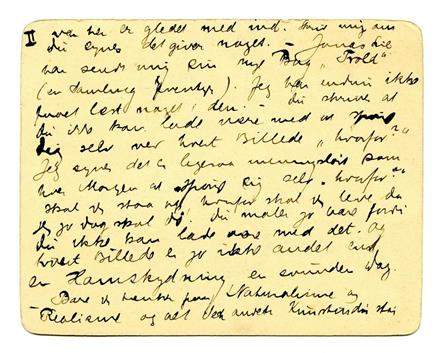 II han har er glædet med ind. Skriv mig om
du synes det giver noget. – Jonas Lie
har sendt mig sin nye Bog „Trold"
(en Samling Eventyr). Jeg har endnu ikke
faaet læst noget i den. – Du skriver at
du ikke kan lade være med at spørge
dig selv ved hvert Billede „hvorfor?"
Jeg synes det er ligesaa meningsløst som
hver Morgen at spørge sig selv „hvorfor"
skal jeg staa op hvorfor skal jeg leve da
jeg jo dog skal dø. Du maler jo bare fordi
du ikke kan lade være med det. Og
hvert Billede er jo ikke andet end
en Hamskydning en svunden Dag.
Bare vi venter paa Naturalisme og
Realisme og alt det andet Kunstnerdis